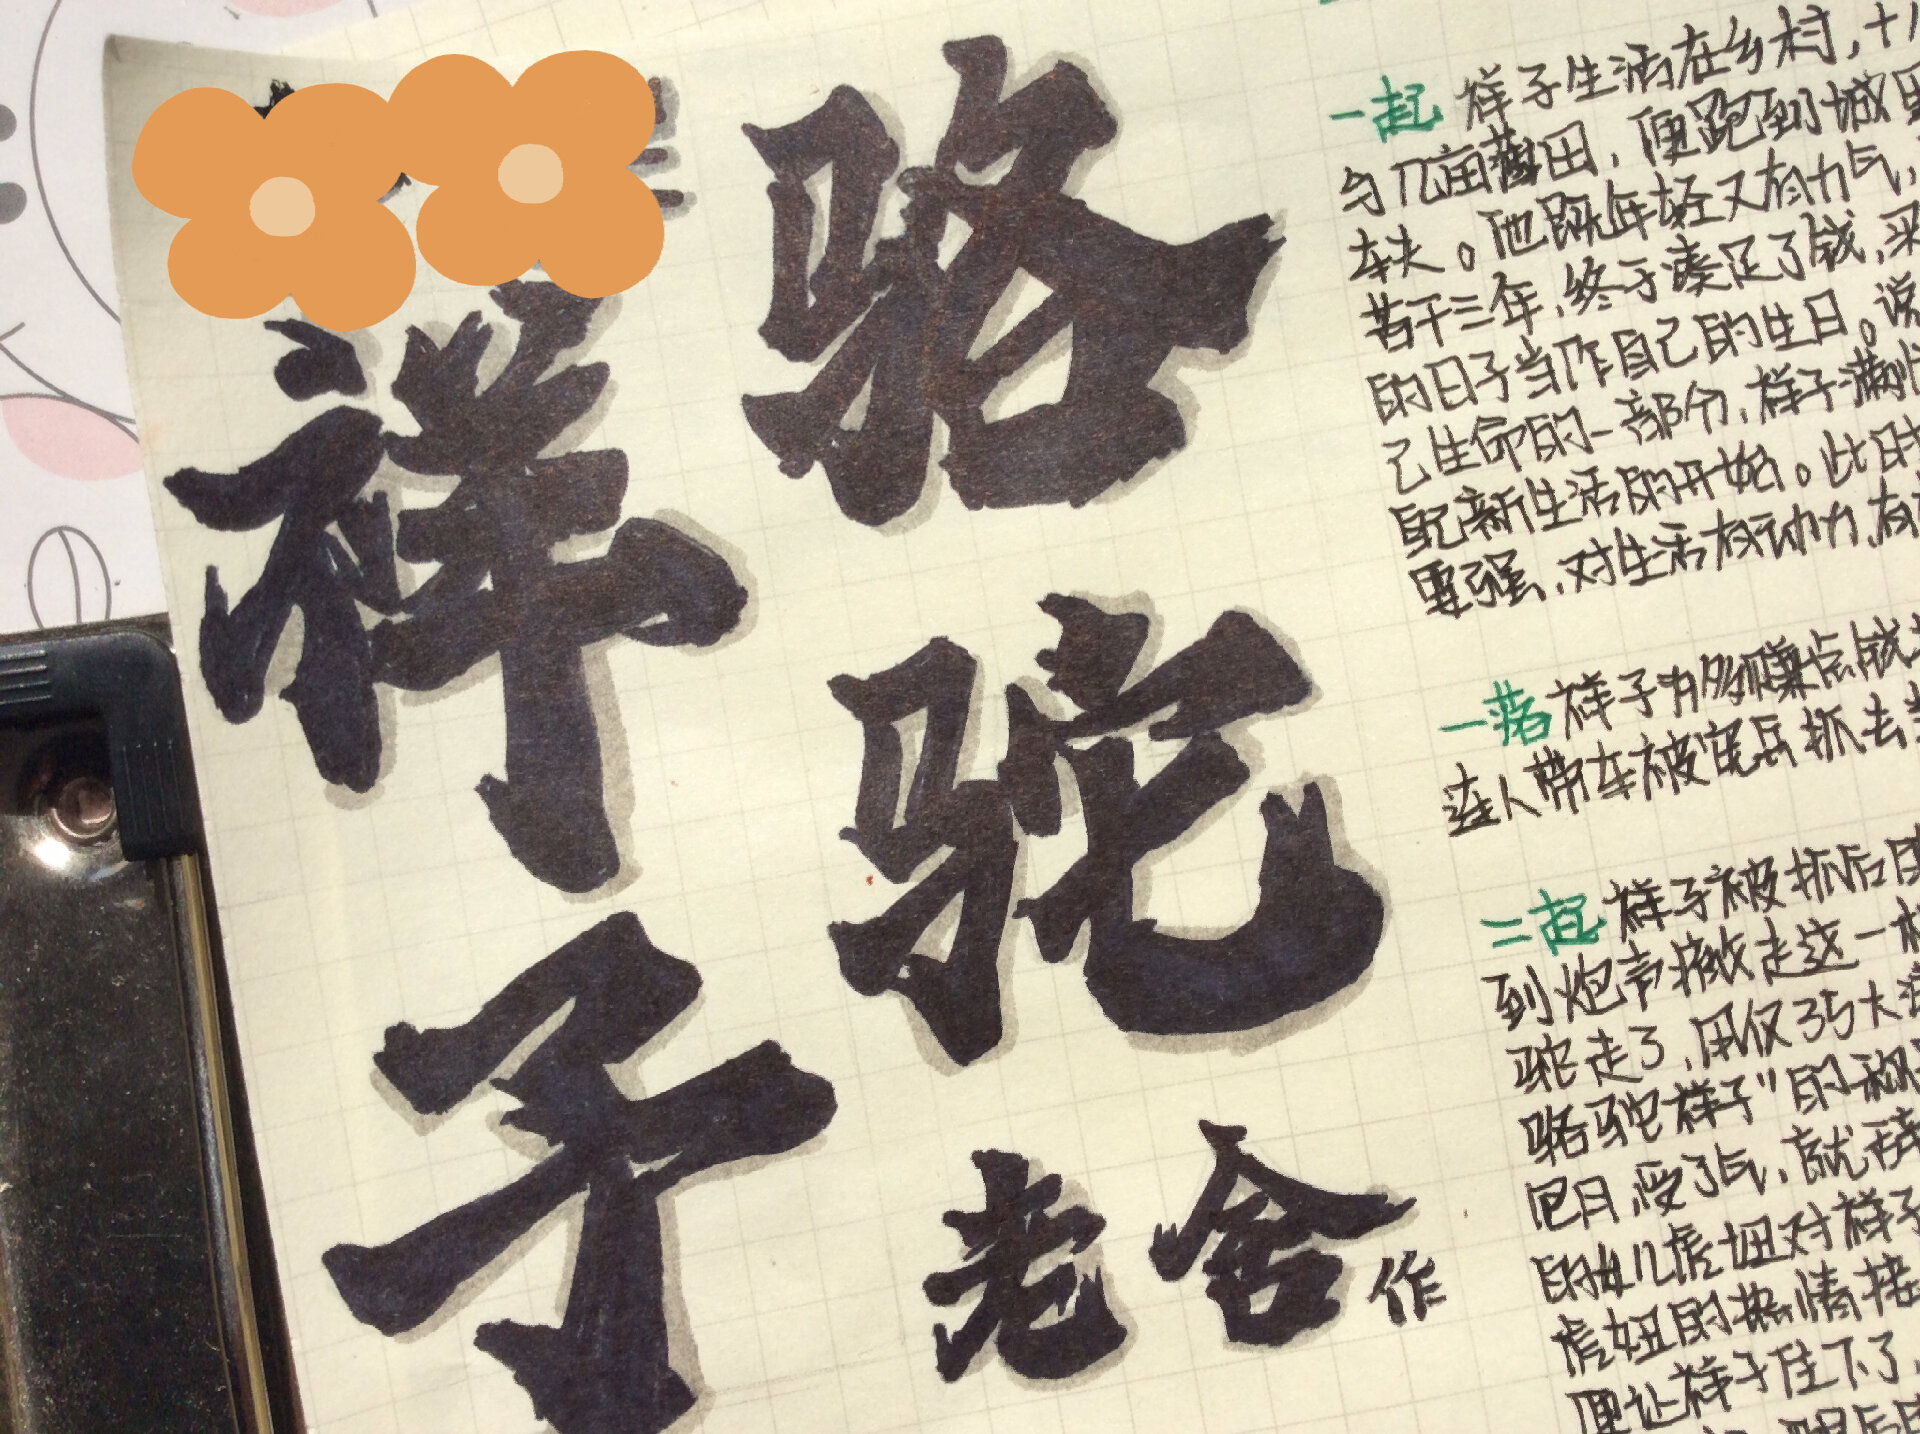 骆驼
祥子
老舍作
一起 祥子生活在乡村,十八
与几亩薄田,便跑到城里
车夫。他既年轻又有力气,
苦干三年,终于凑足了钱,买
的日子当作自己的生日。说
己生命的一部分,祥子满怀
配新生活的开始。此时
要强,对生活有动力,有
一落 祥子为多赚点钱
连人带车被官兵抓去当
二起 祥子被抓后
到炮声撤走这一
驼走了,用仅35大洋
骆驼祥子”的称
巴日,受了气,就
的女儿虎妞对祥子
虎妞的热情接
便让祥子住下了,